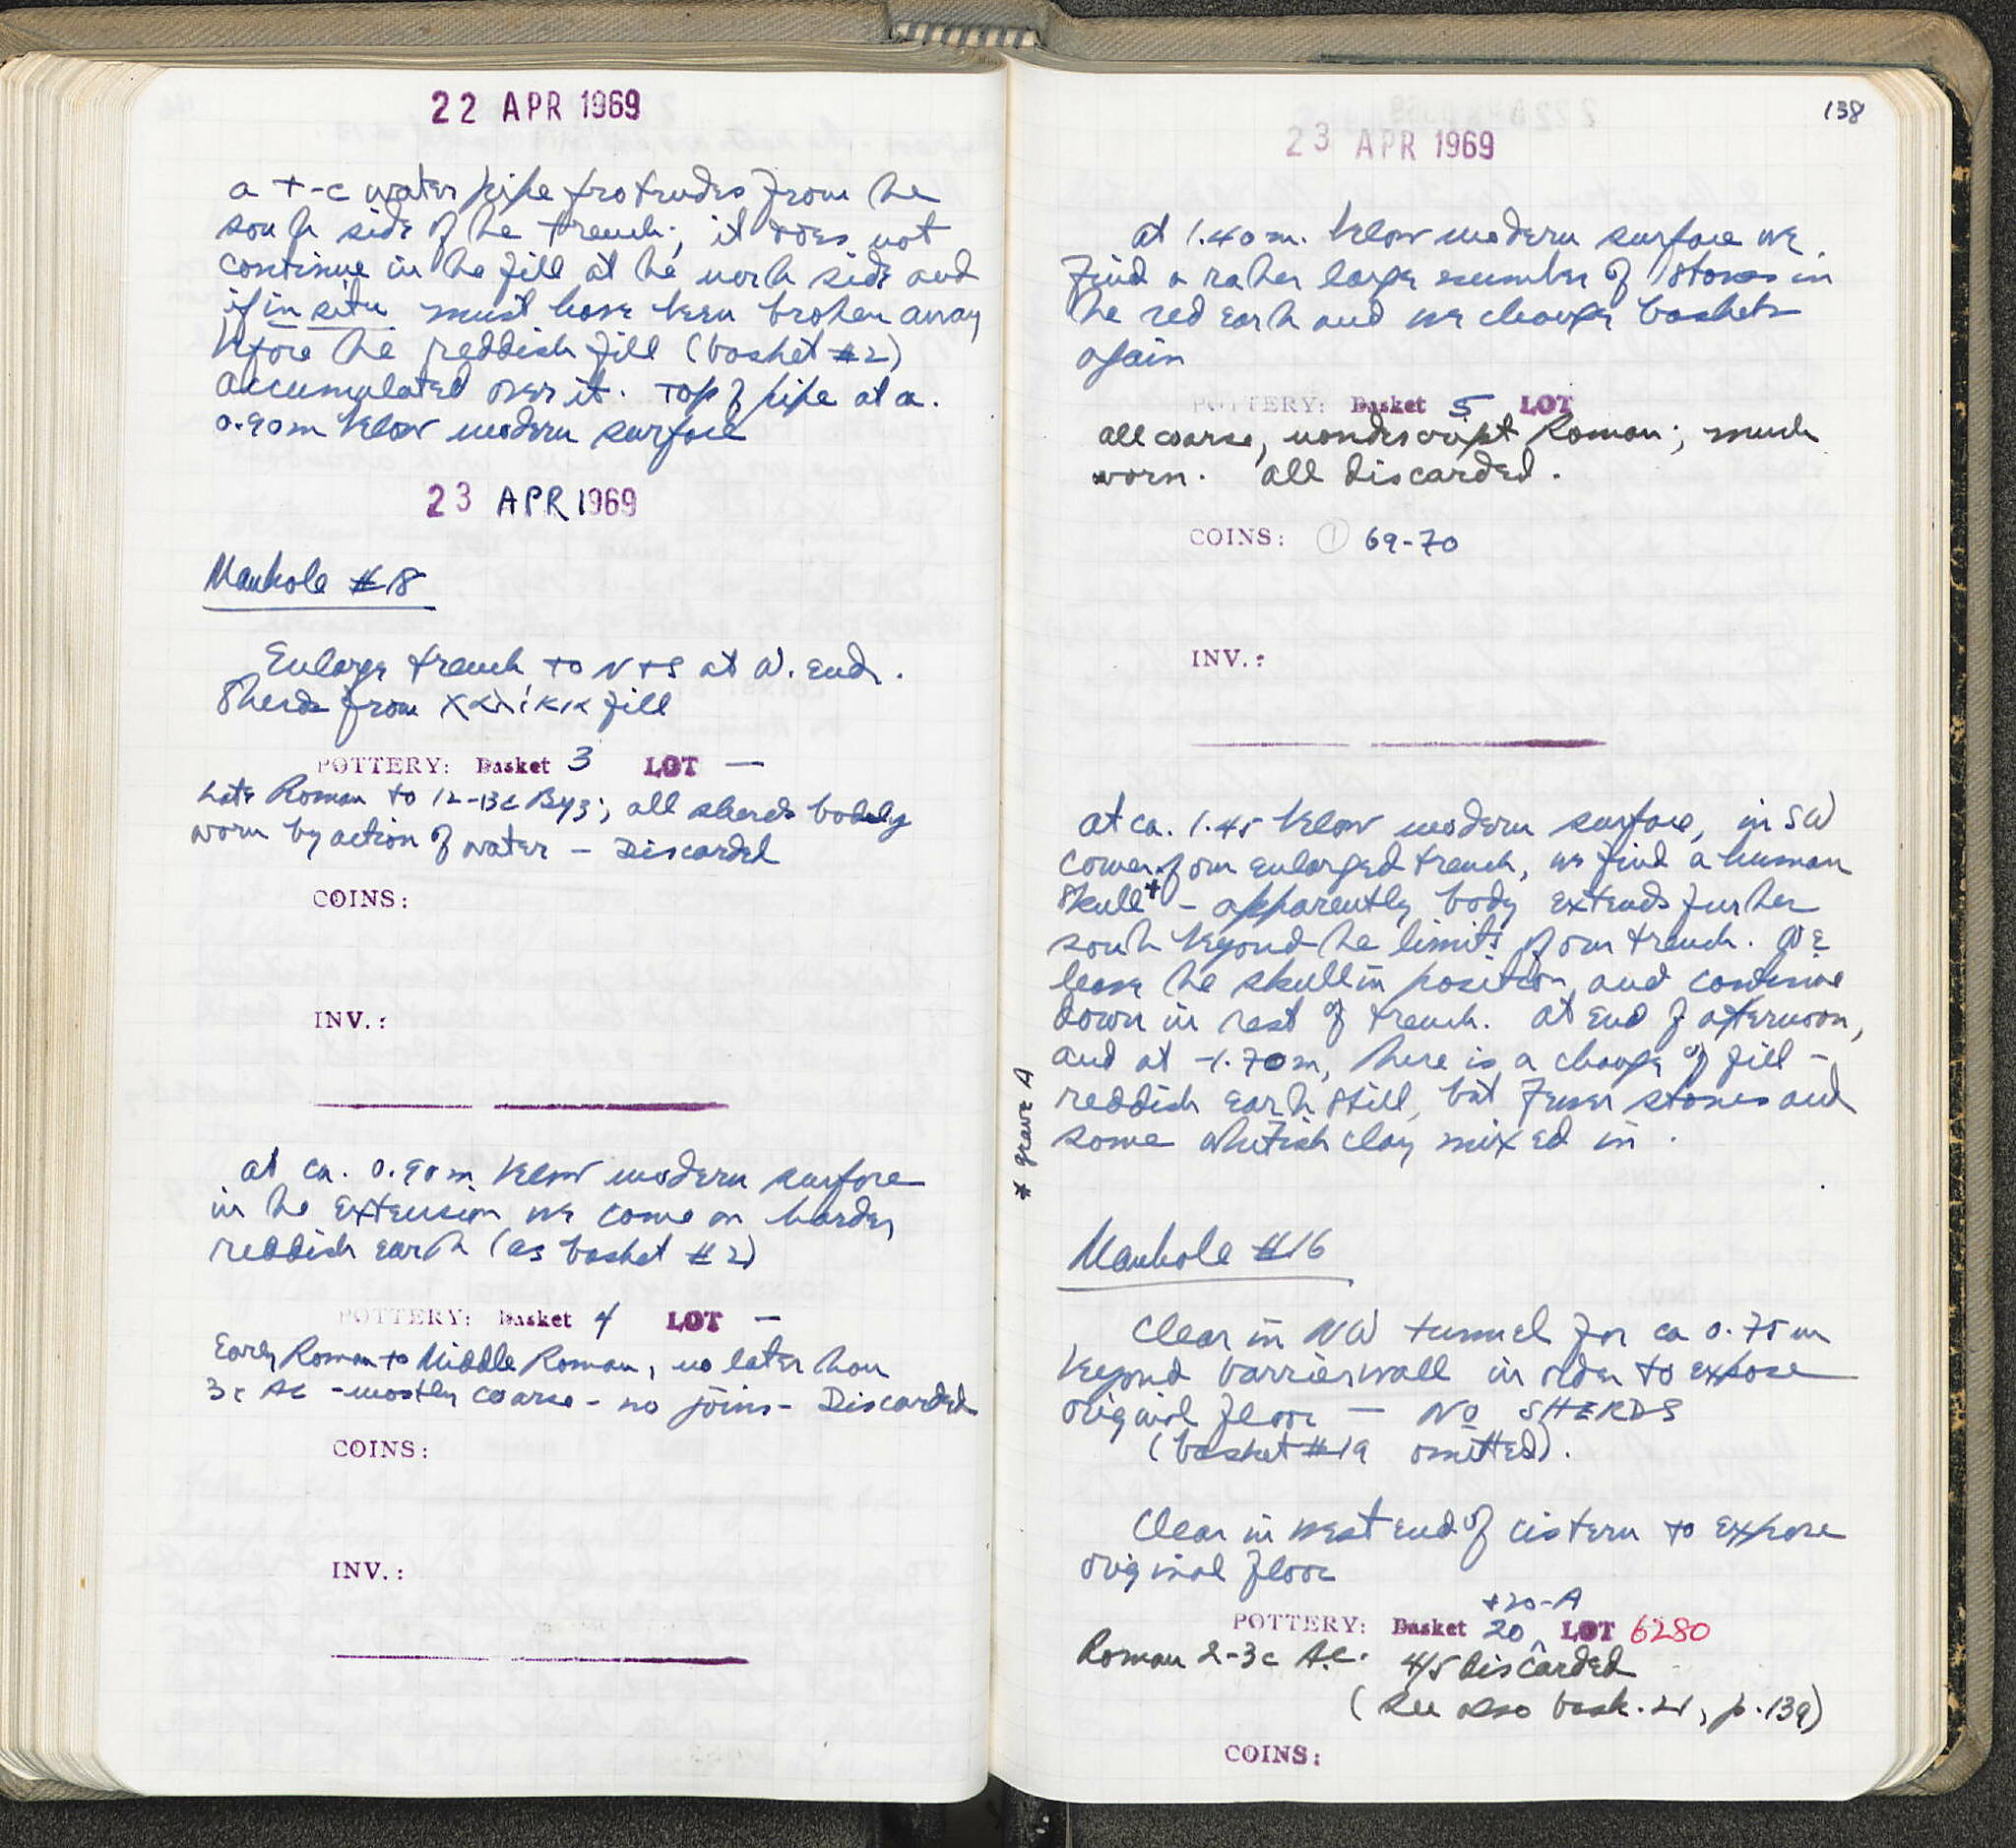 22 APR 1969
a t-c water pipe protrudes from the
south side of the trench; it does not
continue in the fill at the north side and
if in situ must have been broken away
before the reddish fill (basket #2)
accumulated over it. Top of pipe at a.
0.90m below modern surface
23 APR 1969
Manhole #18
Enlarge trench to N+S at W. end.
Sherds from χαλίκια fill
POTTERY: Basket 3 LOT —
Late Roman to 12-13c Byz; all sherds badly
worn by action of water - Discarded
COINS:
INV.:
at ca. 0.90m below modern surface
in the extension we come on harder,
reddish earth (as basket #2)
POTTERY: Basket 4 LOT —
Early Roman to Middle Roman, no later than
3c AC - mostly coarse - no joins - Discarded
COINS:
INV.:
138
23 APR 1969
at 1.40m. below modern surface we
find a rather large number of stones in
the red earth and we change baskets
again
POTTERY: Basket 5 LOT
all coarse, nondescript Roman; much
worn. all discarded.
COINS: (1) 69-70
INV.:
at ca. 1.45 below modern surface, in SW
corner of our enlarged trench, we find a human
skull* - apparently body extends further
south beyond the limits of our trench. We
leave the skull in position, and continue
down in rest of trench. At end of afternoon,
and at -1.70m, there is a change of fill -
reddish earth still, but fewer stones and
some whitish clay mixed in.
* grave A
Manhole #16
Clear in NW tunnel for ca 0.75m
beyond barrier wall in order to expose
original floor — No SHERDS
(basket #19 omitted).
Clear in west end of cistern to expose
original floor
+20-A
POTTERY: Basket 20^ LOT 6280
Roman 2-3c A.C. 4/5 discarded
(see also bask. 21, p. 139)
COINS: